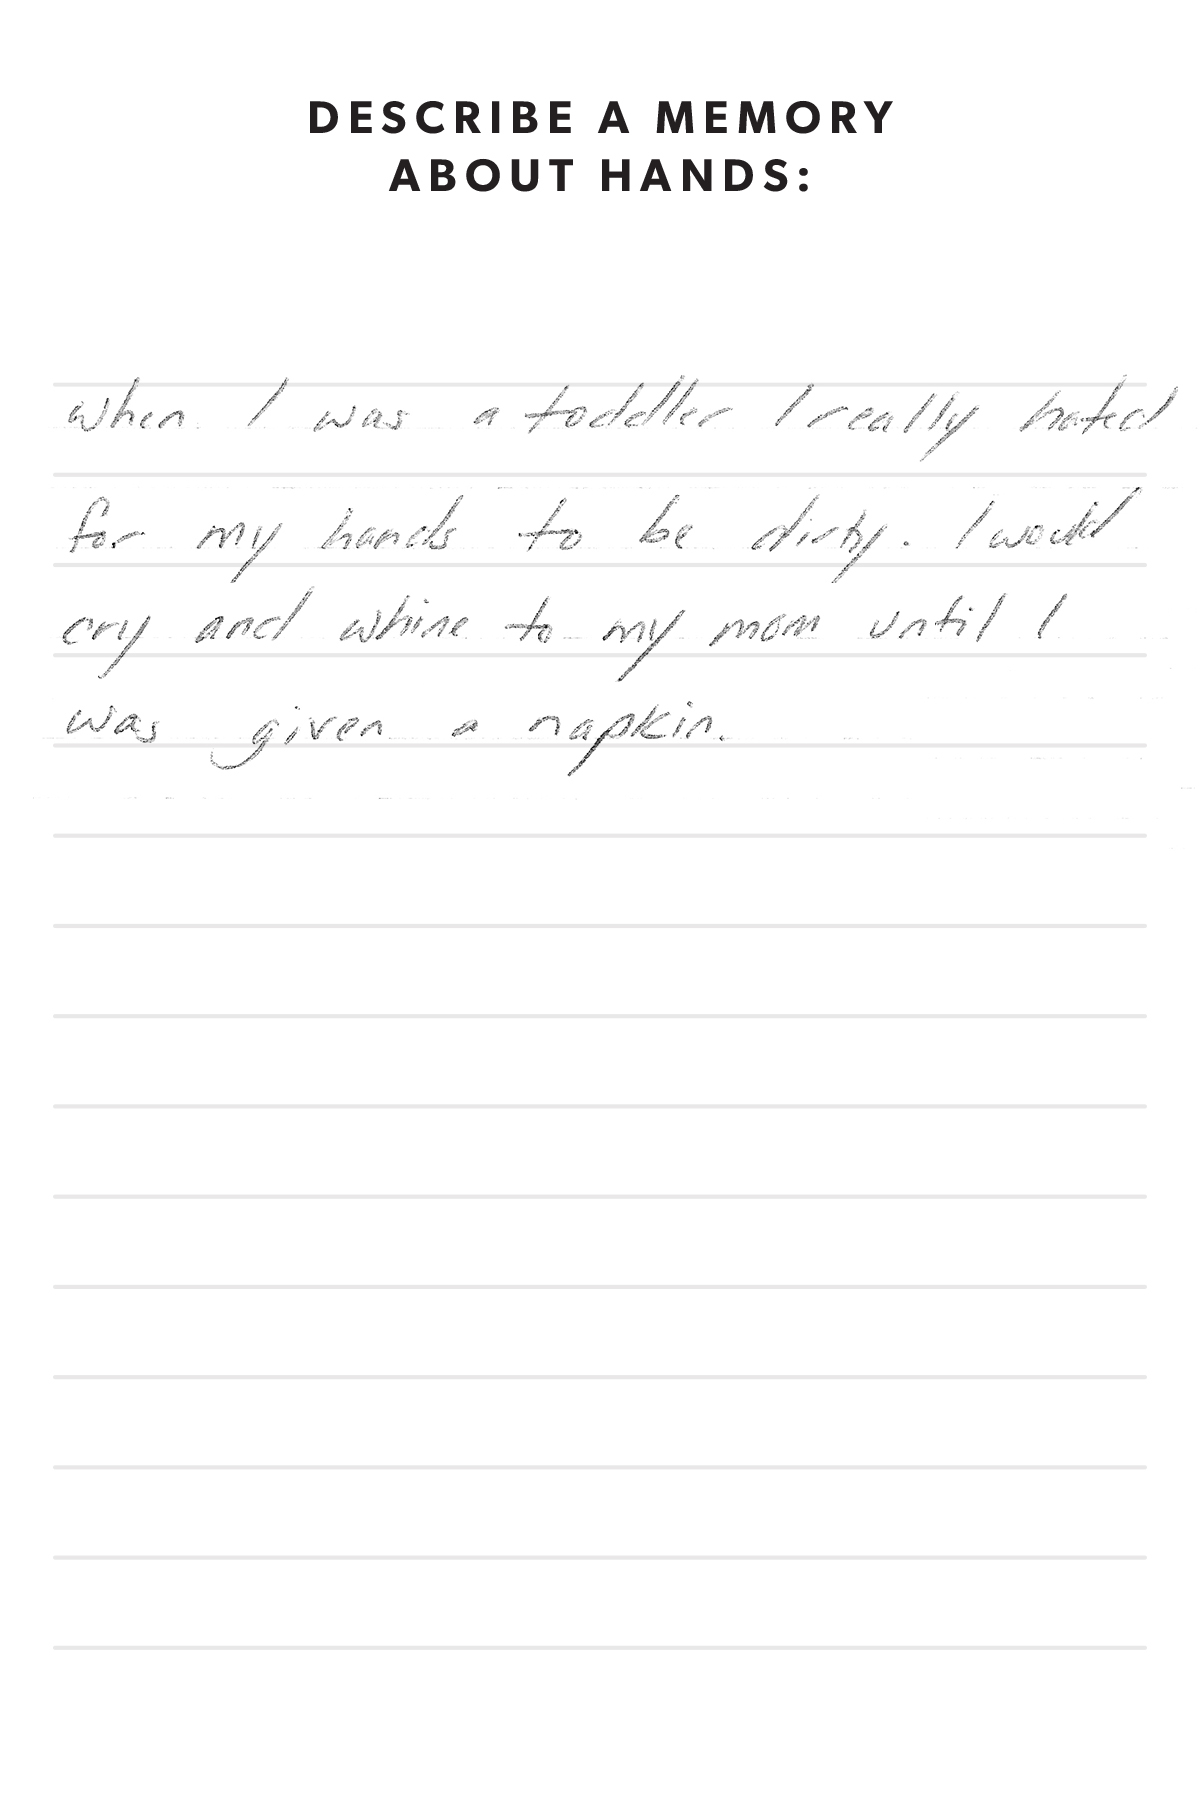 DESCRIBE A MEMORY
ABOUT HANDS:
when I was a toddler I really hated
for my hands to be dirty. I would
cry and whine to my mom until I
was given a napkin.